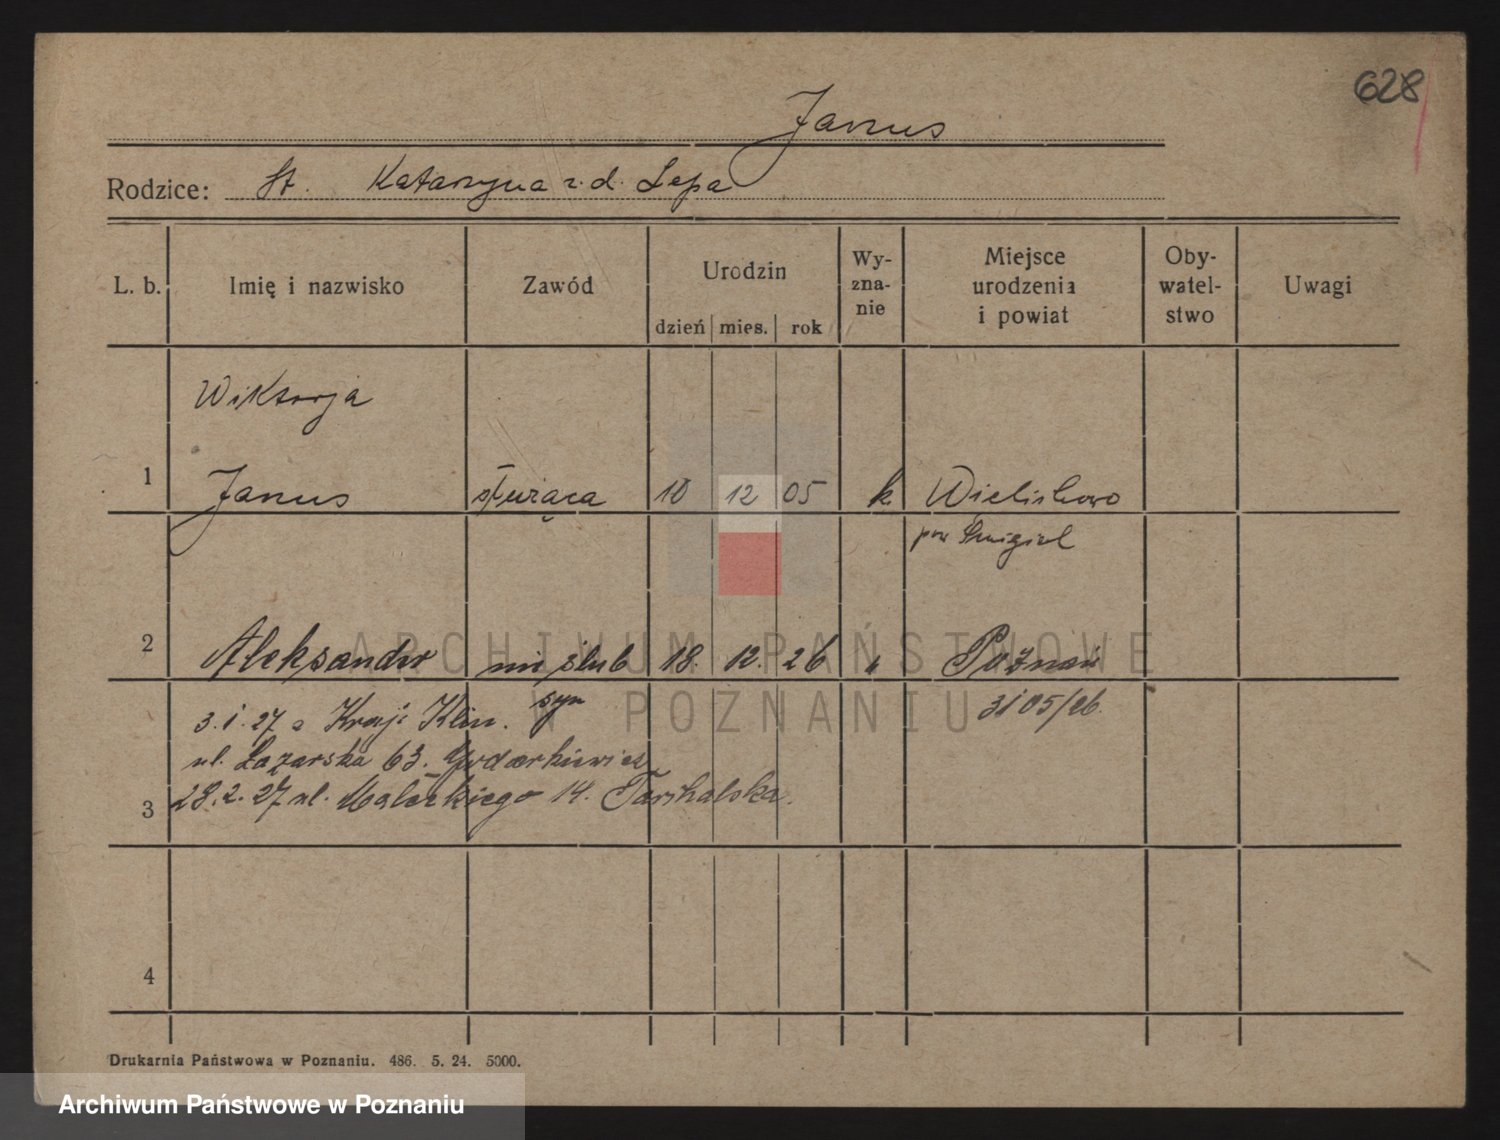 628
Janus
Rodzice: St. Katarzyna z. d. Lepa
L. b. Imię i nazwisko Zawód Urodzin dzień mies. rok Wy-zna-nie Miejsce urodzenia i powiat Oby-watel-stwo Uwagi
Wiktorja
1 Janus służąca 10 12 05 k Wielichowo
pow Śmigiel
2 Aleksander nieślub 18. 12. 26 " Poznań
syn 3105/26.
3.1.27 Klin.
ul. Łazarska 63.
3 28.2.27 ul. Małeckiego 14.
4
Drukarnia Państwowa w Poznaniu. 486. 5. 24. 5000.
ARCHIWUM PAŃSTWOWE
W POZNANIU
Archiwum Państwowe w Poznaniu